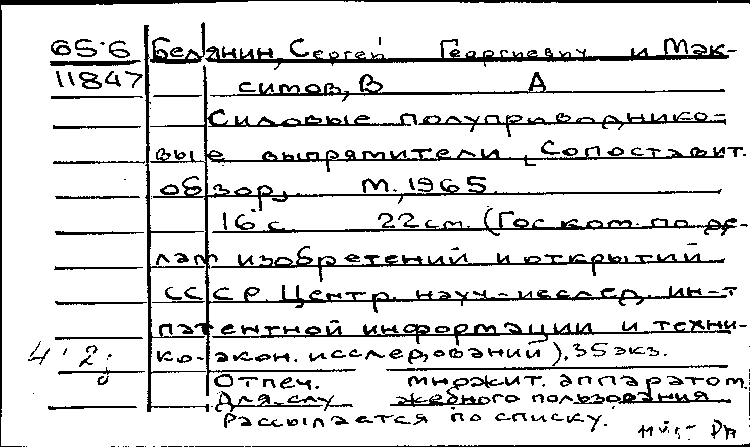 65-6 Белянин, Сергей Георгиевич и Мак-
11847 симов, В А
Силовые полупроводнико-
вые выпрямители [Сопоставит.
обзор]. М., 1965.
16 с. 22 см. (Гос. ком. по де-
лам изобретений и открытий
СССР. Центр. науч.-исслед. ин-т
патентной информации и техни-
ко-экон. исследований). 35 экз.
Отпеч. множит. аппаратом.
Для слу жебного пользования
Рассылается по списку.